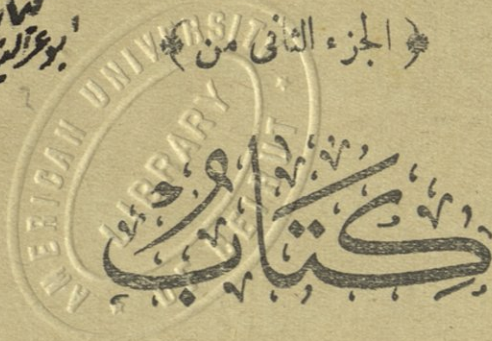 ﴿ الجزء الثانى من ﴾
كِتَابُ
AMERICAN UNIVERSITY
LIBRARY
OF BEIRUT